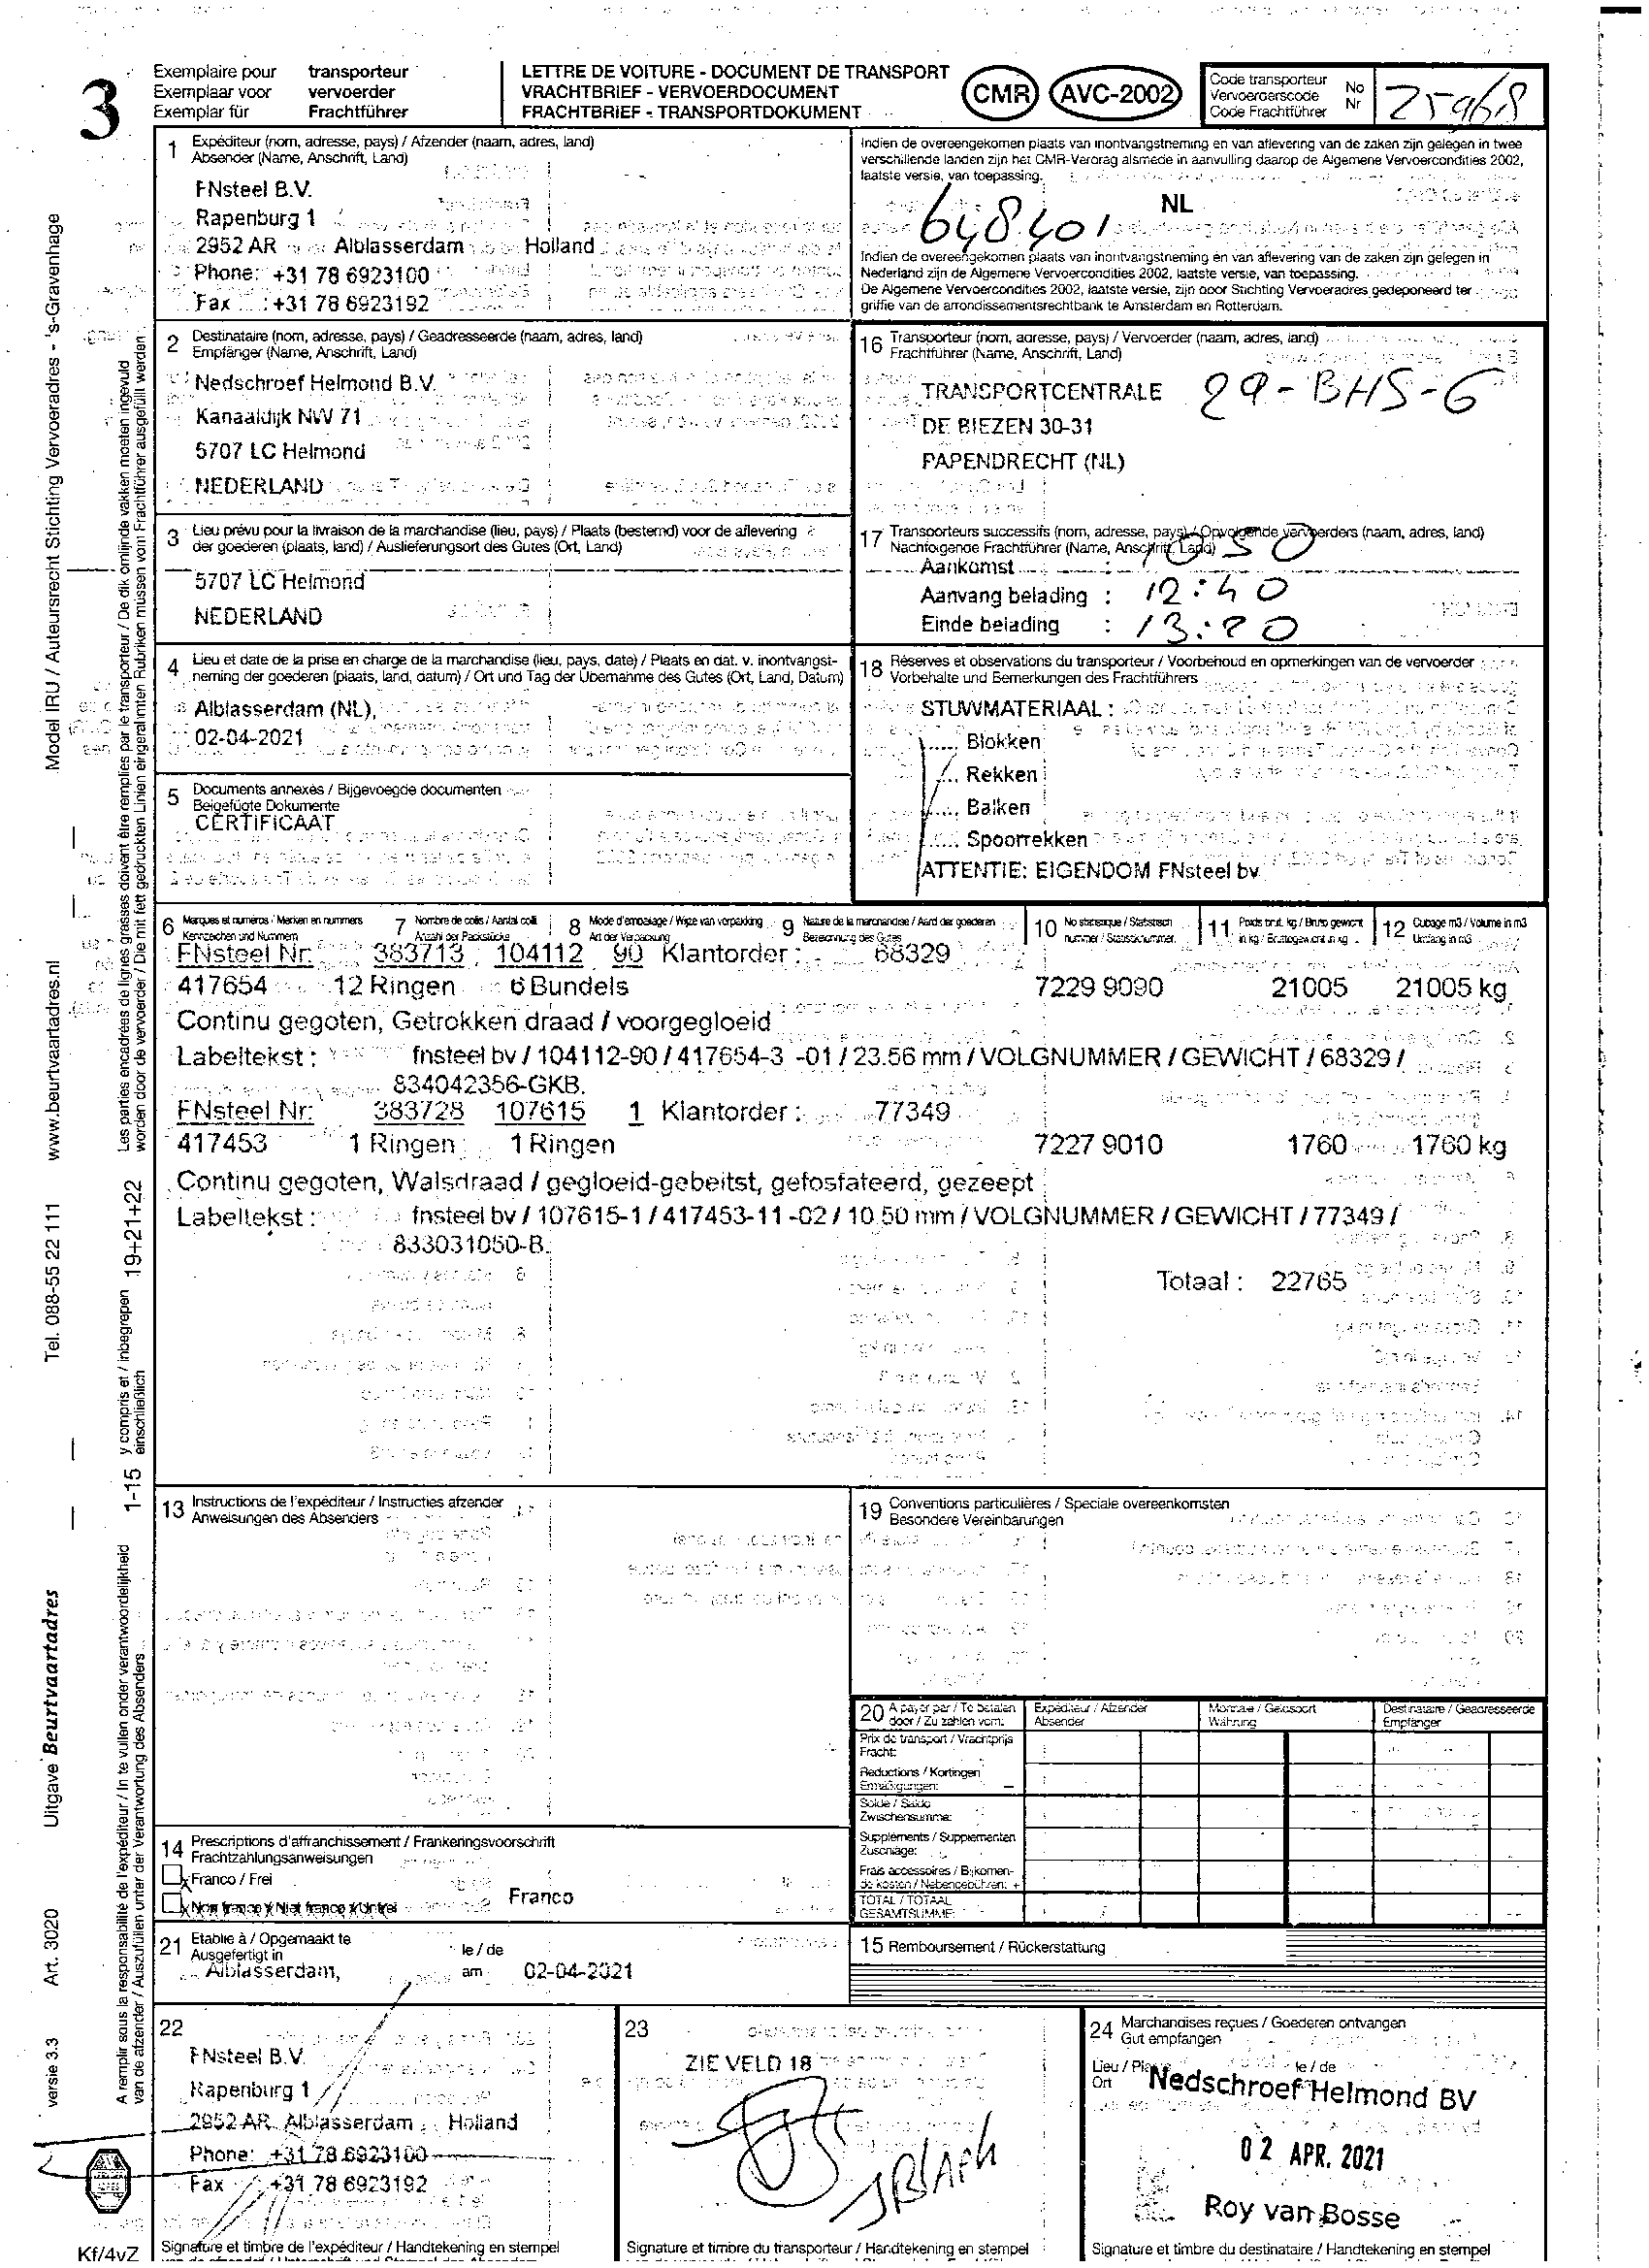 3
Exemplaire pour transporteur
Exemplaar voor vervoerder
Exemplar für Frachtführer
LETTRE DE VOITURE - DOCUMENT DE TRANSPORT
VRACHTBRIEF - VERVOERDOCUMENT
FRACHTBRIEF - TRANSPORTDOKUMENT
CMR AVC-2002
Code transporteur No
Vervoerderscode Nr
Code Frachtführer
1 Expéditeur (nom, adresse, pays) / Afzender (naam, adres, land)
Absender (Name, Anschrift, Land)
FNsteel B.V.
Rapenburg 1
2952 AR Alblasserdam Holland
Phone: +31 78 6923100
Fax : +31 78 6923192
Indien de overeengekomen plaats van inontvangstneming en van aflevering van de zaken zijn gelegen in twee
verschillende landen zijn het CMR-Verdrag alsmede in aanvulling daarop de Algemene Vervoercondities 2002,
laatste versie, van toepassing.
NL
648401
Indien de overeengekomen plaats van inontvangstneming en van aflevering van de zaken zijn gelegen in
Nederland zijn de Algemene Vervoercondities 2002, laatste versie, van toepassing.
De Algemene Vervoercondities 2002, laatste versie, zijn door Stichting Vervoeradres gedeponeerd ter
griffie van de arrondissementsrechtbank te Amsterdam en Rotterdam.
2 Destinataire (nom, adresse, pays) / Geadresseerde (naam, adres, land)
Empfänger (Name, Anschrift, Land)
Nedschroef Helmond B.V.
Kanaaldijk NW 71
5707 LC Helmond
NEDERLAND
16 Transporteur (nom, adresse, pays) / Vervoerder (naam, adres, land)
Frachtführer (Name, Anschrift, Land)
TRANSPORTCENTRALE 29-BHS-6
DE BIEZEN 30-31
PAPENDRECHT (NL)
3 Lieu prévu pour la livraison de la marchandise (lieu, pays) / Plaats (bestemd) voor de aflevering
der goederen (plaats, land) / Auslieferungsort des Gutes (Ort, Land)
5707 LC Helmond
NEDERLAND
17 Transporteurs successifs (nom, adresse, pays) / Opvolgende vervoerders (naam, adres, land)
Nachfolgende Frachtführer (Name, Anschrift, Land)
Aankomst : 1050
Aanvang belading : 12:40
Einde belading : 13:20
4 Lieu et date de la prise en charge de la marchandise (lieu, pays, date) / Plaats en dat. v. inontvangst-
neming der goederen (plaats, land, datum) / Ort und Tag der Übernahme des Gutes (Ort, Land, Datum)
Alblasserdam (NL),
02-04-2021
18 Réserves et observations du transporteur / Voorbehoud en opmerkingen van de vervoerder
Vorbehalte und Bemerkungen des Frachtführers
STUWMATERIAAL :
..... Blokken
..... Rekken
..... Balken
..... Spoorrekken
ATTENTIE: EIGENDOM FNsteel bv
5 Documents annexés / Bijgevoegde documenten
Beigefügte Dokumente
CERTIFICAAT
6 Marques et numéros / Merken en nummers
Kennzeichen und Nummern
7 Nombre de colis / Aantal colli
Anzahl der Packstücke
8 Mode d'emballage / Wijze van verpakking
Art der Verpackung
9 Nature de la marchandise / Aard der goederen
Bezeichnung des Gutes
10 No statistique / Statistisch
nummer / Statistiknummer
11 Poids brut, kg / Bruto gewicht
in kg / Bruttogewicht in kg
12 Cubage m3 / Volume in m3
Umfang in m3
FNsteel Nr: 383713 104112 90 Klantorder : 68329
417654 12 Ringen 6 Bundels 7229 9090 21005 21005 kg
Continu gegoten, Getrokken draad / voorgegloeid
Labeltekst : fnsteel bv / 104112-90 / 417654-3 -01 / 23.56 mm / VOLGNUMMER / GEWICHT / 68329 /
834042356-GKB.
FNsteel Nr: 383728 107615 1 Klantorder : 77349
417453 1 Ringen 1 Ringen 7227 9010 1760 1760 kg
Continu gegoten, Walsdraad / gegloeid-gebeitst, gefosfateerd, gezeept
Labeltekst : fnsteel bv / 107615-1 / 417453-11 -02 / 10.50 mm / VOLGNUMMER / GEWICHT / 77349 /
833031050-B.
Totaal : 22765
13 Instructions de l'expéditeur / Instructies afzender
Anweisungen des Absenders
19 Conventions particulières / Speciale overeenkomsten
Besondere Vereinbarungen
20 A payer par / Te betalen
door / Zu zahlen vom:
Expéditeur / Afzender
Absender
Monnaie / Geldsoort
Währung
Destinataire / Geadresseerde
Empfänger
Prix de transport / Vrachtprijs
Fracht:
Réductions / Kortingen
Ermäßigungen: –
Solde / Saldo
Zwischensumme:
Suppléments / Supplementen
Zuschläge:
Frais accessoires / Bijkomen-
de kosten / Nebengebühren: +
TOTAL / TOTAAL
GESAMTSUMME:
14 Prescriptions d'affranchissement / Frankeringsvoorschrift
Frachtzahlungsanweisungen
Franco / Frei
Non franco / Niet franco / Unfrei
Franco
21 Etablie à / Opgemaakt te
Ausgefertigt in
Alblasserdam,
le / de
am 02-04-2021
15 Remboursement / Rückerstattung
22
FNsteel B.V.
Rapenburg 1
2952 AR Alblasserdam Holland
Phone: +31 78 6923100
Fax : +31 78 6923192
Signature et timbre de l'expéditeur / Handtekening en stempel
23
ZIE VELD 18
Signature et timbre du transporteur / Handtekening en stempel
24 Marchandises reçues / Goederen ontvangen
Gut empfangen
Lieu / Plaats
Ort
le / de
Nedschroef Helmond BV
02 APR. 2021
Roy van Bosse
Signature et timbre du destinataire / Handtekening en stempel
Model IRU / Auteursrecht Stichting Vervoeradres - 's-Gravenhage
www.beurtvaartadres.nl
Tel. 088-55 22 111
Uitgave Beurtvaartadres
Art. 3020
versie 3.3
Les parties encadrées de lignes grasses doivent être remplies par le transporteur / De dik omlijnde vakken moeten ingevuld
worden door de vervoerder / Die mit fett gedruckten Linien eingerahmten Rubriken müssen vom Frachtführer ausgefüllt werden
19+21+22
y compris et / inbegrepen
einschließlich
1-15
A remplir sous la responsabilité de l'expéditeur / In te vullen onder verantwoordelijkheid
van de afzender / Auszufüllen unter der Verantwortung des Absenders
Kf/4vZ